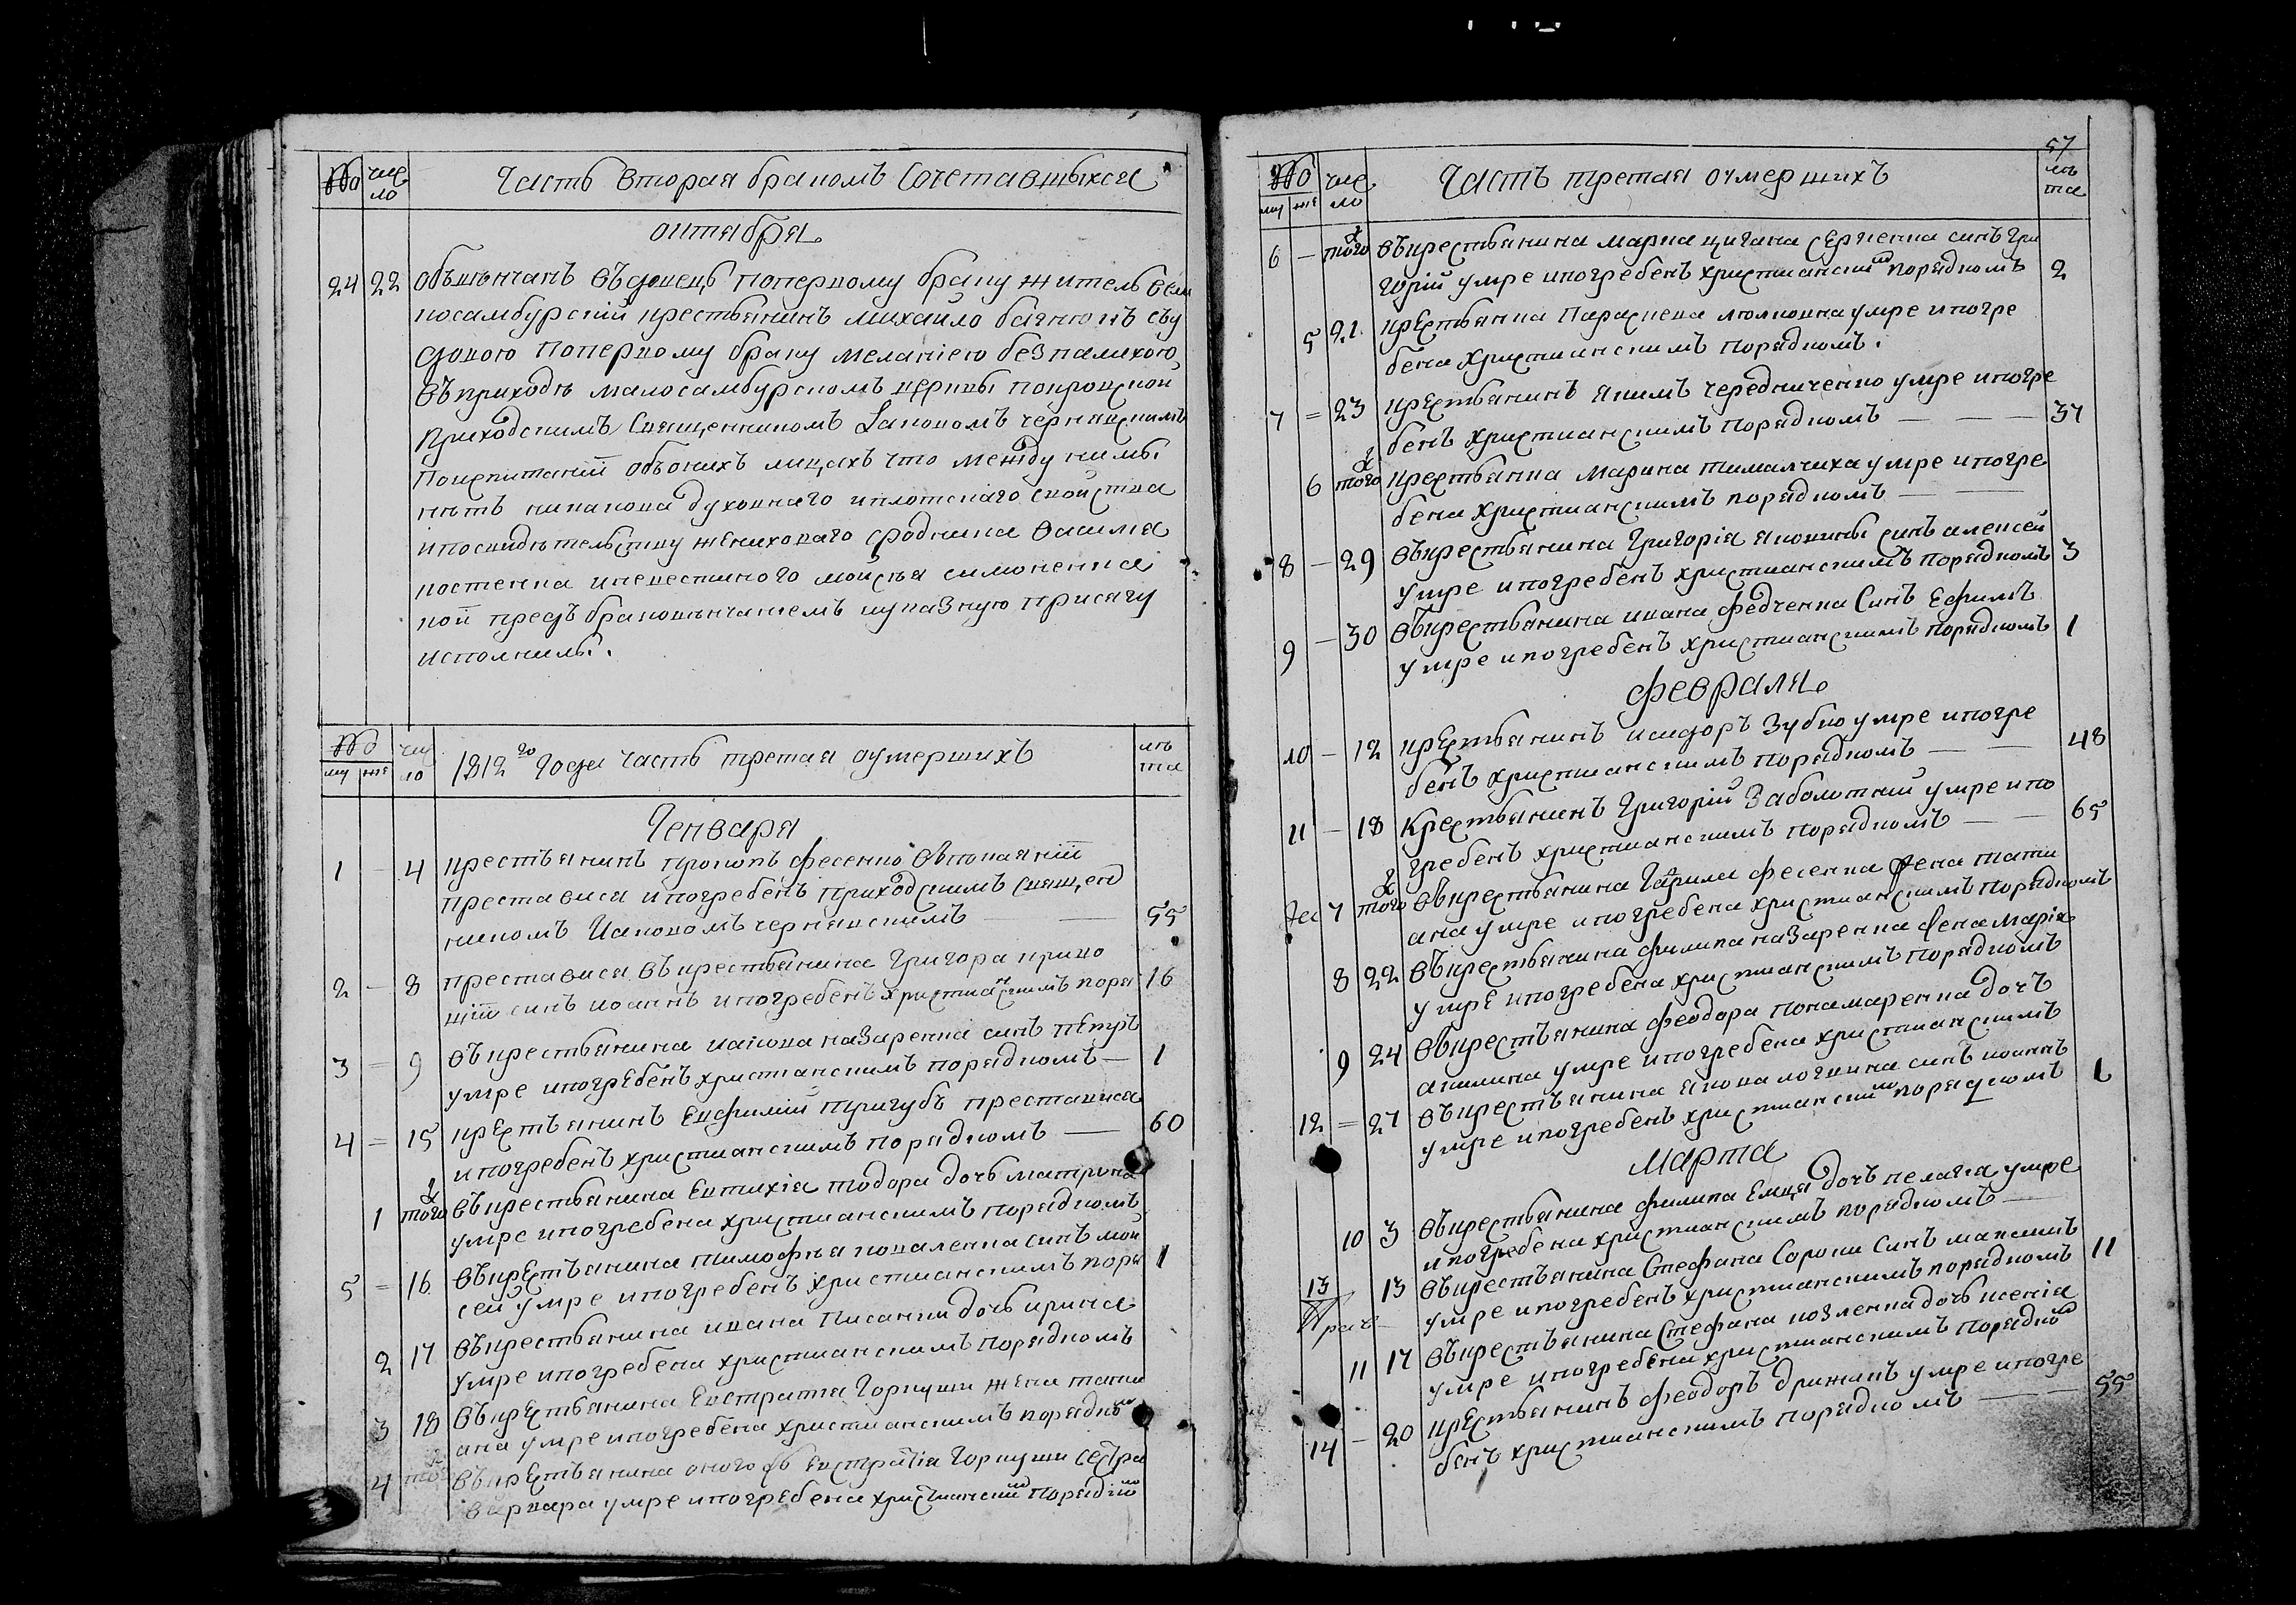 № чис
ло Часть вторая бракомъ Сочетавшихся
октября
24 22 Обвѣнчанъ въдовецъ поперьвому браку житель вели
косамбурскій крестьянинъ михайло баенко съ въ
довою поперьвому браку меланіею безпалихою
въ приходѣ малосамбурскомъ церквы покровской
Приходскимъ Священникомъ Іаковомъ чернявскимъ
Поиспитаній объонихъ лицахъ что между нимы
нѣтъ никакова духовнаго иплотскаго свойства
ипосвидѣтельству жениховаго сродника василя
костенка иневестиного мойсея симоненка
кой предъ браковѣнчаніемъ иуказную присягу
исполнилы.
№ чис
му же ло 1812го года часть третая оумершихъ лѣ
та
Генваря
1 – 4 крестьянинъ прокопъ фесенко впокаяніи
преставися ипогребенъ приходскимъ священ
никомъ Иаковомъ чернявскимъ — 55
2 – 8 преставися въкрестьянина Григора криво
шіи синъ иоаннъ ипогребенъ христианскимъ поря 16
3 = 9 въкрестьянина иакова назаренка синъ петръ
умре ипогребенъ христианскимъ порядкомъ — 1
4 = 15 крестьянинъ Евфимій тригубъ преставися
ипогребенъ христианскимъ порядкомъ — 60
1 того въкрестьянина Евтихія тодора дочь матрона
умре ипогребена христианскимъ порядкомъ
5 = 16 въкрестьянина тимофѣя коваленка синъ мой
сей умре ипогребенъ христианскимъ поря 1
2 17 въкрестьянина ивана Писанки дочь ирина
умре ипогребена христианскимъ порядкомъ
3 18 въкрестьянина Евстратія Горкуши жена тати
ана умре ипогребена христианскимъ порядко
4 того въкрестьянина оного Евстратія Горкуши сестра
варвара умре ипогребена християнским порядко
57
№ чис
му же ло Часть третая оумершихъ лѣ
та
6 – того въкрестьянина марка цигана Сергиенка синъ Гри
горій умре ипогребенъ християнским порядкомъ 2
5 21 крестьянка Параскева умре ипогре
бена христианскимъ порядкомъ.
7 = 23 крестьянинъ якимъ чередниченко умре ипогре
бенъ христианскимъ порядкомъ — 37
6 того крестьянка Марина тималчиха умре ипогре
бена христианскимъ порядкомъ —
8 – 29 въкрестьянина Григорія яковины синъ алексей
умре ипогребенъ христианскимъ порядкомъ 3
9 – 30 въкрестьянина ивана федченка Синъ Ефимъ
умре ипогребенъ христианскимъ порядкомъ 1
февраля
10 – 12 крестьянинъ исидоръ Зубко умре ипогре
бенъ христианскимъ порядкомъ — 48
11 – 18 Крестьянинъ Григорій Заболотній умре ипо
гребенъ христианскимъ порядкомъ — 65
7 того въкрестьянина Гаврила фесенка жена тати
ана умре ипогребена христианскимъ порядкомъ
8 22 въкрестьянина филипа назаренка жена марія
умре ипогребена христианскимъ порядкомъ
9 24 въкрестьянина феодора понамаренка дочъ
акилина умре ипогребена христианскимъ
12 = 27 въкрестьянина якова логвина синъ иоаннъ
умре ипогребенъ христианским порядкомъ 1
Марта
10 3 въкрестьянина филипа Емця дочъ пелагея умре
ипогребена христианскимъ порядкомъ —
13 13 въкрестьянина Стефана Сороки Синъ максимъ
умре ипогребенъ христианскимъ порядкомъ 11
11 17 въкрестьянина Стефана козленка дочь ксенія
умре ипогребена христианскимъ порядко
14 – 20 крестьянинъ феодоръ дрижакъ умре ипогре
бенъ христианскимъ порядкомъ — 55